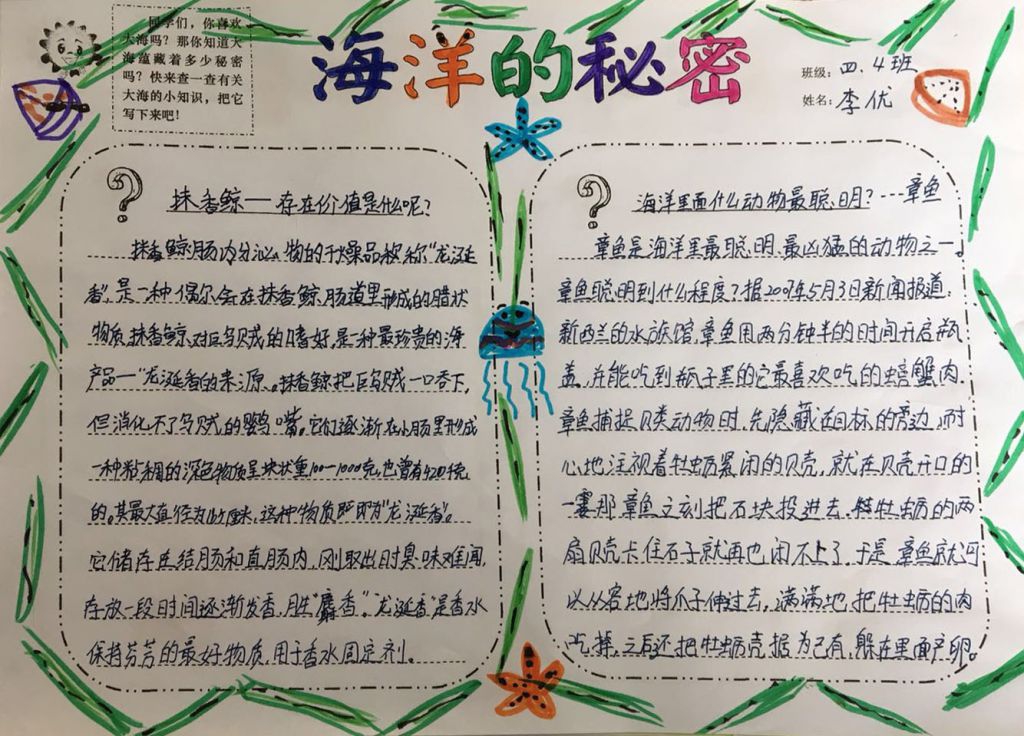 同学们，你喜欢
大海吗？那你知道大
海蕴藏着多少秘密
吗？快来查一查有关
大海的小知识，把它
写下来吧！
海洋的秘密
班级：四.4班
姓名：李优
？抹香鲸一存在价值是什么呢？
抹香鲸肠内分泌物的干燥品被称“龙涎
香”，是一种偶尔会在抹香鲸肠道里形成的腊状
物质，抹香鲸对巨乌贼的嗜好，是一种最珍贵的海
产品一“龙涎香的来源。抹香鲸把巨乌贼一口吞下，
但消化不了乌贼的鹦嘴。它们逐渐在小肠里形成
一种粘稠的深色物质呈块状重100一1000克，也曾有420千克
的。其最大直径为165厘米，这种物质即为“龙涎香”。
它储存在结肠和直肠内，刚取出时臭味难闻，
存放一段时间逐渐发香，胜“麝香”。“龙涎香”是香水
保持芬芳的最好物质，用于香水固定剂。
？海洋里面什么动物最聪明？---章鱼
章鱼是海洋里最聪明、最凶猛的动物之一。
章鱼聪明到什么程度？据2007年5月3日新闻报道：
新西兰的水族馆，章鱼用两分钟半的时间开启瓶
盖，并能吃到瓶子里的它最喜欢吃的螃蟹肉。
章鱼捕捉贝类动物时，先隐藏在目标的旁边，耐
心地注视着牡蛎紧闭的贝壳，就在贝壳开口的
一霎那章鱼立刻把石块投进去，牡蛎的两
扇贝壳卡住石子就再也闭不上了，于是，章鱼就可
以从容地将爪子伸过去，满满地把牡蛎的肉
吃掉，之后还把牡蛎壳据为己有，躲在里面产卵。